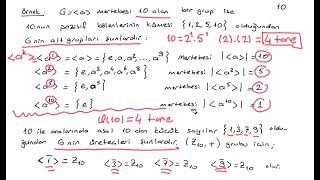 Örnek: G=<a> mertebesi 10 olan bir grup ise 10
10 nun pozitif bölenlerinin kümesi {1,2,5,10} olduğundan
G nin alt grupları şunlardır: 10=2¹.5¹ (2).(2)=4 tane
<a¹>=<a>={e,a,a²,...,a⁹} mertebesi |<a>|=10
<a²>={e,a²,a⁴,a⁶,a⁸} mertebesi |<a²>|=5
<a⁵>={e,a⁵} mertebesi |<a⁵>|=2
<a¹⁰>={e} mertebesi |<a¹⁰>|=1
φ(10)=4 tane
10 ile aralarında asal 10 dan küçük sayılar {1,3,7,9} oldu-
ğundan G nin üreteçleri şunlardır. (Z₁₀,+) grubu için;
<1̄>=Z₁₀ <3̄>=Z₁₀ <7̄>=Z₁₀ <9̄>=Z₁₀ olur.